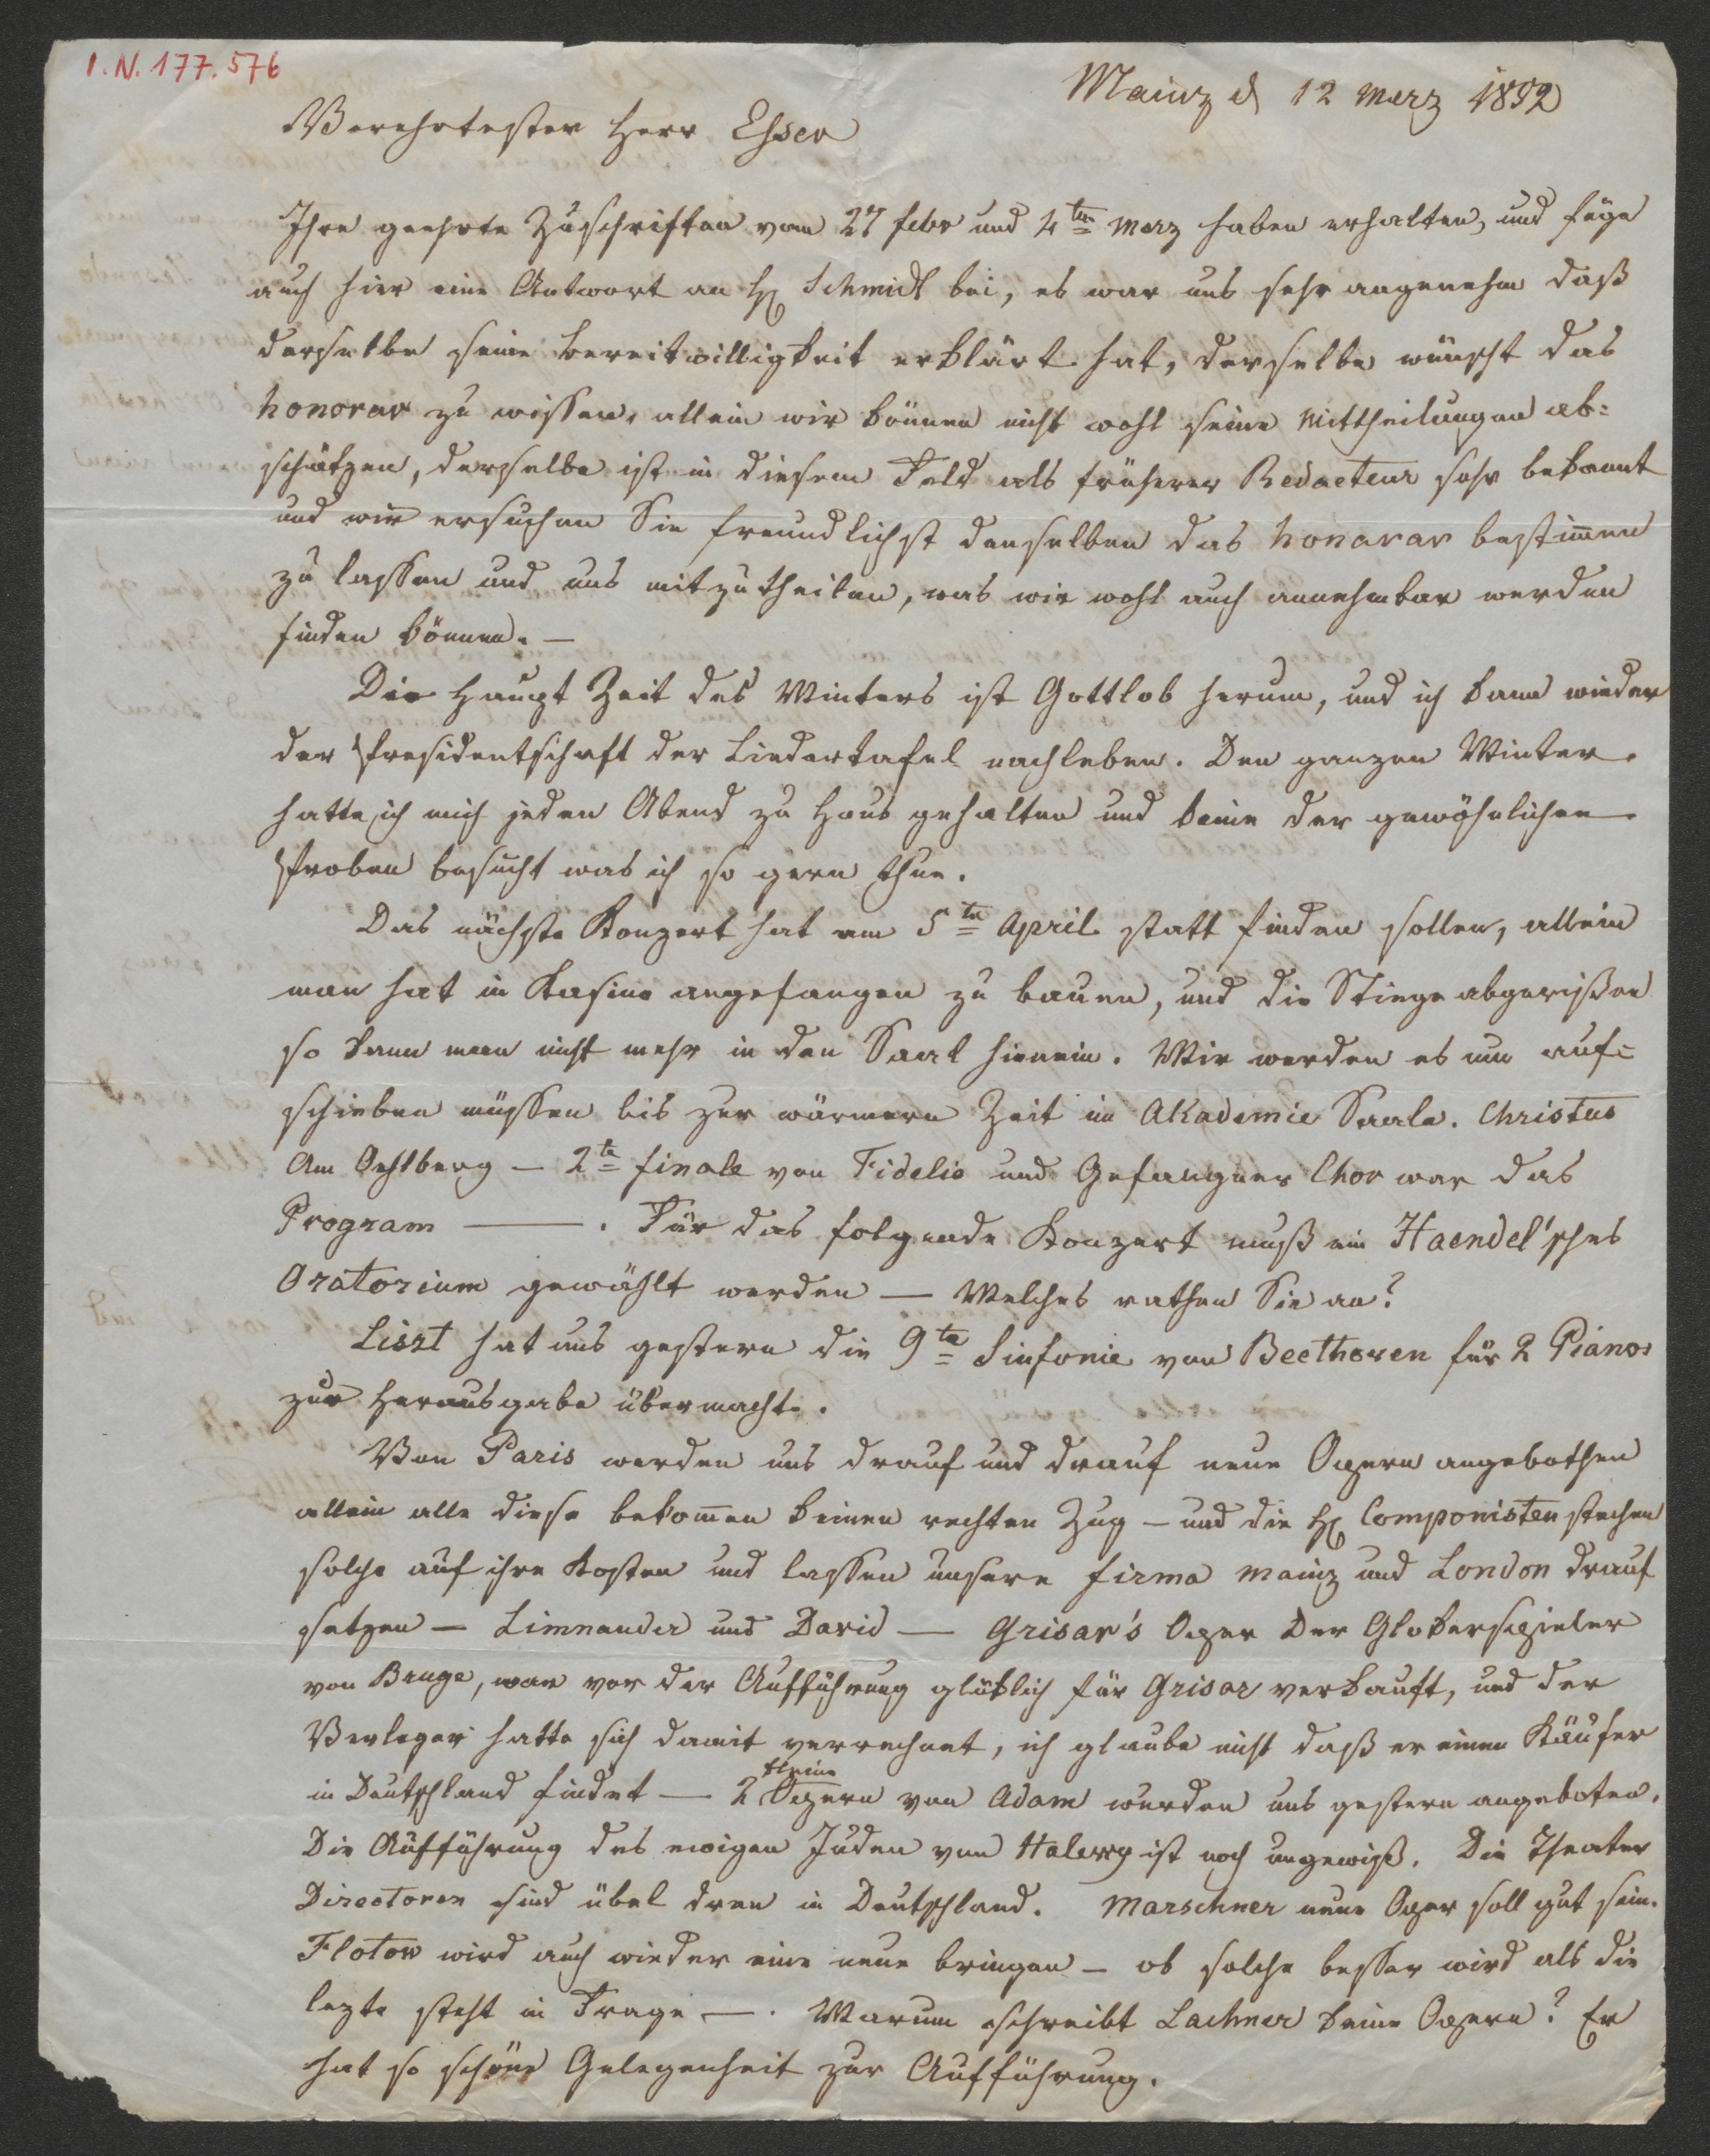 I. N. 177.576
Mainz d 12 Merz 1852
Verehrtester Herr Esser
Ihre geehrte Zuschriften vom 27 febr und 4ten Merz haben erhalten, und füge
auch hier eine Antwort an H Schmidt bei, es war uns sehr angenehm daß
derselbe seine bereitwilligkeit erklärt hat, derselbe wünscht das
honorar zu wissen, allein wir können nicht wohl seine Mittheilungen ab=
schätzen, derselbe ist in diesem Feld als früherer Redacteur sehr bekannt
und wir ersuchen Sie freundlichst denselben das honorar bestim̄en
zu lassen und uns mitzutheilen, was wir wohl auch annehmbar werden
finden können. —
Die Haupt Zeit des Winters ist Gottlob herum, und ich kann wieder
der Presidentschaft der Liedertafel nachleben. Den ganzen Winter
hatte ich mich jeden Abend zu Haus gehalten und keine der gewöhnlichen
Proben besucht was ich so gern thue.
Das nächste Konzert hat am 5ten April statt finden sollen, allein
man hat in Kasino angefangen zu bauen, und die Stiege abgerißen
so kann man nicht mehr in den Saal hinein. Wir werden es nun auf=
schieben müssen bis zur wärmern Zeit im Akademie Saale. Christus
Am Oehlberg — 2te finale von Fidelio und Gefangner Chor war das
Program ——— . Für das folgende Konzert muß ein Haendel'sches
Oratorium gewählt werden — Welches rathen Sie an?
Liszt hat uns gestern die 9te Sinfonie von Beethoven für 2 Pianos
zur Herausgabe übermacht.
Von Paris werden uns drauf und drauf neue Opern angebothen
allein alle diese bekom̄en keinen rechten Zug — und die H Componisten stechen
solche auf ihre Kosten und lassen unsere firma Mainz und London drauf
setzen — Limnander und David — Grisar's Oper Der Glokenspieler
von Bruge, war vor der Aufführung glüklich für Grisar verkauft, und der
Verleger hatte sich damit verrechnet, ich glaube nicht daß er einen Käufer
in Deutschland findet — 2 kleine Opern von Adam wurden uns gestern angeboten.
Die Aufführung des ewigen Juden von Halevy ist noch ungewiß. Die Theater
Directoren sind übel dran in Deutschland. Marschner neue Oper soll gut sein.
Flotow wird auch wieder eine neue bringen — ob solche besser wird als die
lezte steht in Frage — . Warum schreibt Lachner keine Opern? Er
hat so schöne Gelegenheit zur Aufführung.